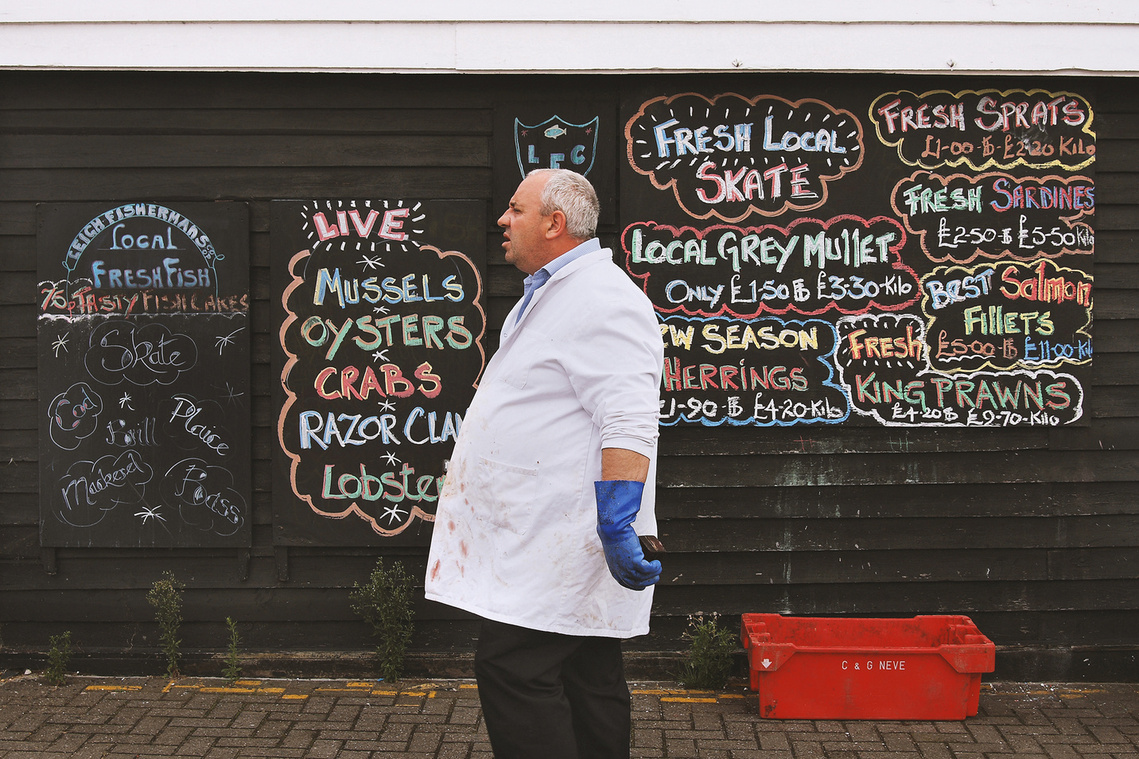 LEIGH FISHERMANS CO.
Local
FRESH FISH
TASTY FISH CAKES
Skate
Cod
Brill
Plaice
Mackerel
LIVE
MUSSELS
OYSTERS
CRABS
RAZOR CLA
Lobste
L F C
FRESH LOCAL
SKATE
LOCAL GREY MULLET
ONLY £1-50 lb £3-30 Kilo
EW SEASON
HERRINGS
£1-90 lb £4-20 Kilo
FRESH SPRATS
£1-00 lb £2-20 Kilo
FRESH SARDINES
£2-50 lb £5-50 Kilo
BEST SALMON
FILLETS
£5-00 lb £11-00 Kilo
FRESH
KING PRAWNS
£4-20 lb £9-70 Kilo
C & G NEVE